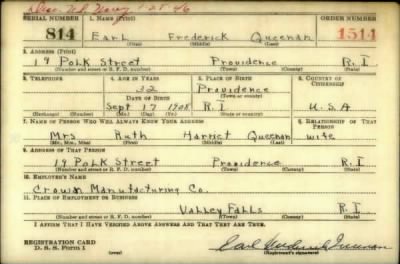 Disc. U.S. Navy 1-28-46
SERIAL NUMBER 1. NAME (Print) ORDER NUMBER
814 Earl Frederick Queenan 1514
(First) (Middle) (Last)
2. ADDRESS (Print)
19 Polk Street Providence R. I
(Number and street or R. F. D. number) (Town) (County) (State)
3. TELEPHONE 4. AGE IN YEARS 5. PLACE OF BIRTH 6. COUNTRY OF CITIZENSHIP
32 Providence
DATE OF BIRTH (Town or county)
Sept 17 1908 R. I U.S.A
(Exchange) (Number) (Mo.) (Day) (Yr.) (State or country)
7. NAME OF PERSON WHO WILL ALWAYS KNOW YOUR ADDRESS 8. RELATIONSHIP OF THAT PERSON
Mrs Ruth Harriet Queenan wife
(Mr., Mrs., Miss) (First) (Middle) (Last)
9. ADDRESS OF THAT PERSON
19 Polk Street Providence R. I
(Number and street or R. F. D. number) (Town) (County) (State)
10. EMPLOYER'S NAME
Crown Manufacturing Co.
11. PLACE OF EMPLOYMENT OR BUSINESS
Valley Falls R. I
(Number and street or R. F. D. number) (Town) (County) (State)
I AFFIRM THAT I HAVE VERIFIED ABOVE ANSWERS AND THAT THEY ARE TRUE.
REGISTRATION CARD
D. S. S. Form 1 Earl Frederick Queenan
(Registrant's signature)